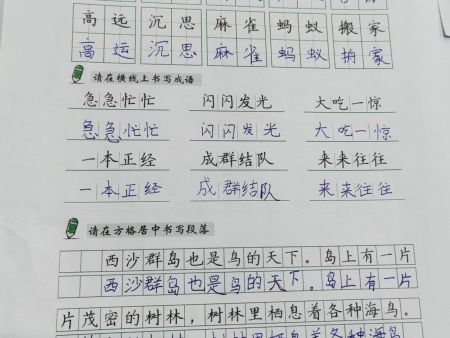 高远 沉思 麻雀 蚂蚁 搬家
高运 沉思 麻雀 蚂蚁 搬家
请在横线上书写成语
急急忙忙 闪闪发光 大吃一惊
急急忙忙 闪闪发光 大吃一惊
一本正经 成群结队 来来往往
一本正经 成群结队 来来往往
请在方格居中书写段落
西沙群岛也是鸟的天下。岛上有一片
西沙群岛也是鸟的天下。岛上有一片
片茂密的树林，树林里栖息着各种海鸟。
树林里栖息着各种海鸟